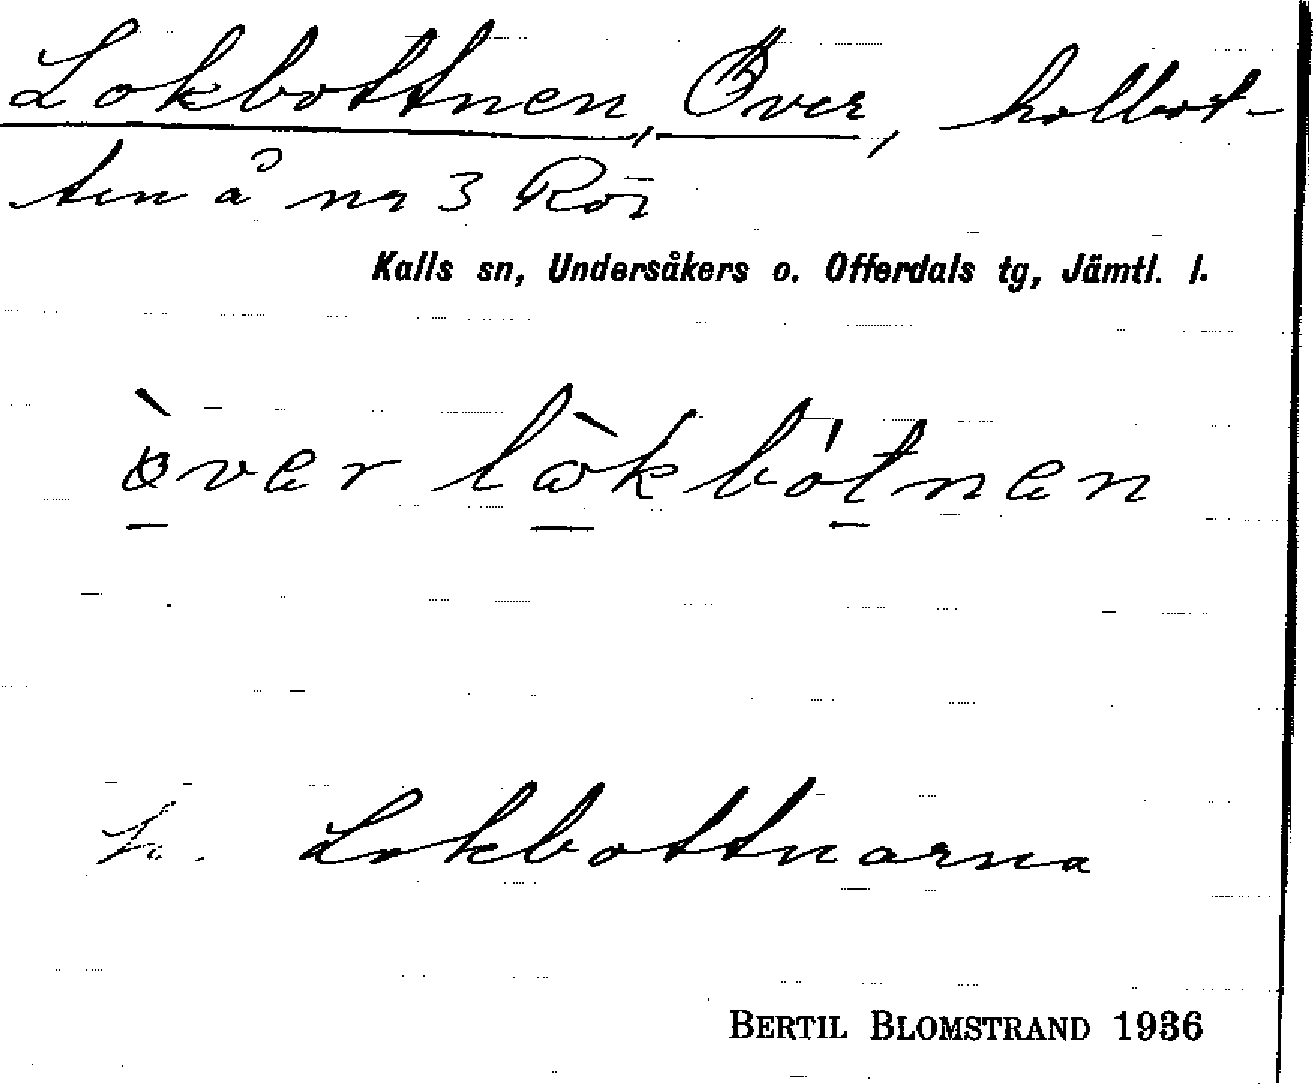 Lokbottnen, Över, holbot-
ten å nr 3 Röi
Kalls sn, Undersåkers o. Offerdals tg, Jämtl. l.
òver lòkbótnen
Lokbottnarna
BERTIL BLOMSTRAND 1936